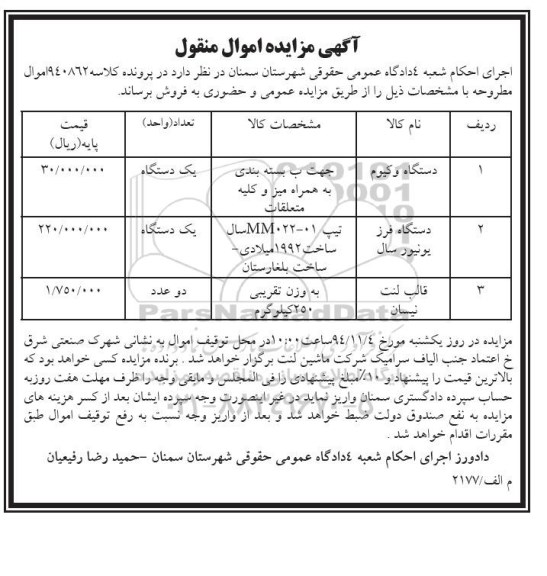 آگهی مزایده اموال منقول
اجرای احکام شعبه ۴دادگاه عمومی حقوقی شهرستان سمنان در نظر دارد در پرونده کلاسه۹۴۰۸۶۲اموال
مطروحه با مشخصات ذیل را از طریق مزایده عمومی و حضوری به فروش برساند.
ردیف نام کالا مشخصات کالا تعداد(واحد) قیمت
پایه(ریال)
۱ دستگاه وکیوم جهت ب بسته بندی یک دستگاه ۳۰/۰۰۰/۰۰۰
به همراه میز و کلیه
متعلقات
۲ دستگاه فرز تیپ MM۰۲۲-۰۱سال یک دستگاه ۲۲۰/۰۰۰/۰۰۰
یونیور سال ساخت۱۹۹۲میلادی-
ساخت بلغارستان
۳ قالب لنت به وزن تقریبی دو عدد ۱/۷۵۰/۰۰۰
نیسان ۲۵۰کیلوگرم
مزایده در روز یکشنبه مورخ ۹۴/۱۱/۴ساعت۱۰:۰۰در محل توقیف اموال به نشانی شهرک صنعتی شرق
خ اعتماد جنب الیاف سرامیک شرکت ماشین لنت برگزار خواهد شد . برنده مزایده کسی خواهد بود که
بالاترین قیمت را پیشنهاد و ۱۰٪مبلغ پیشنهادی را فی المجلس و مابقی وجه را ظرف مهلت هفت روزبه
حساب سپرده دادگستری سمنان واریز نماید در غیر اینصورت وجه سپرده ایشان بعد از کسر هزینه های
مزایده به نفع صندوق دولت ضبط خواهد شد و بعد از واریز وجه نسبت به رفع توقیف اموال طبق
مقررات اقدام خواهد شد .
دادورز اجرای احکام شعبه ۴دادگاه عمومی حقوقی شهرستان سمنان -حمید رضا رفیعیان
م الف/۲۱۷۷
ParsNamadData